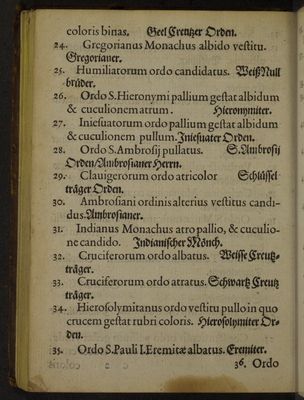 coloris binas. Geel Creutzer Orden.
24. Gregorianus Monachus albido vestitu.
Gregorianer.
25. Humiliatorum ordo candidatus. Weiß Null
brüder.
26. Ordo S. Hieronymi pallium gestat albidum
& cuculionem atrum. Hieronymiter.
27. Iniesuatorum ordo pallium gestat albidum
& cuculionem pullum. Iniesuater Orden.
28. Ordo S. Ambrosij pullatus. S. Ambrosij
Orden/Ambrosianer Herrn.
29. Clauigerorum ordo atricolor Schlüssel
träger Orden.
30. Ambrosiani ordinis alterius vestitus candi-
dus. Ambrosianer.
31. Indianus Monachus atro pallio, & cuculio-
ne candido. Indianischer Mönch.
32. Cruciferorum ordo albatus. Weisse Creutz-
träger.
33. Cruciferorum ordo atratus. Schwartz Creutz
träger.
34. Hierosolymitanus ordo vestitu pullo in quo
crucem gestat rubri coloris. Hierosolymiter Or-
den.
35. Ordo S. Pauli I. Eremitæ albatus. Eremiter.
36. Ordo